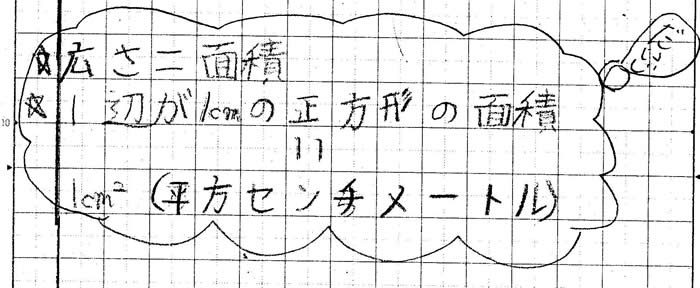 ☆広さ＝面積
☆1辺が1cmの正方形の面積
＝
1cm²(平方センチメートル)
だいじ
10